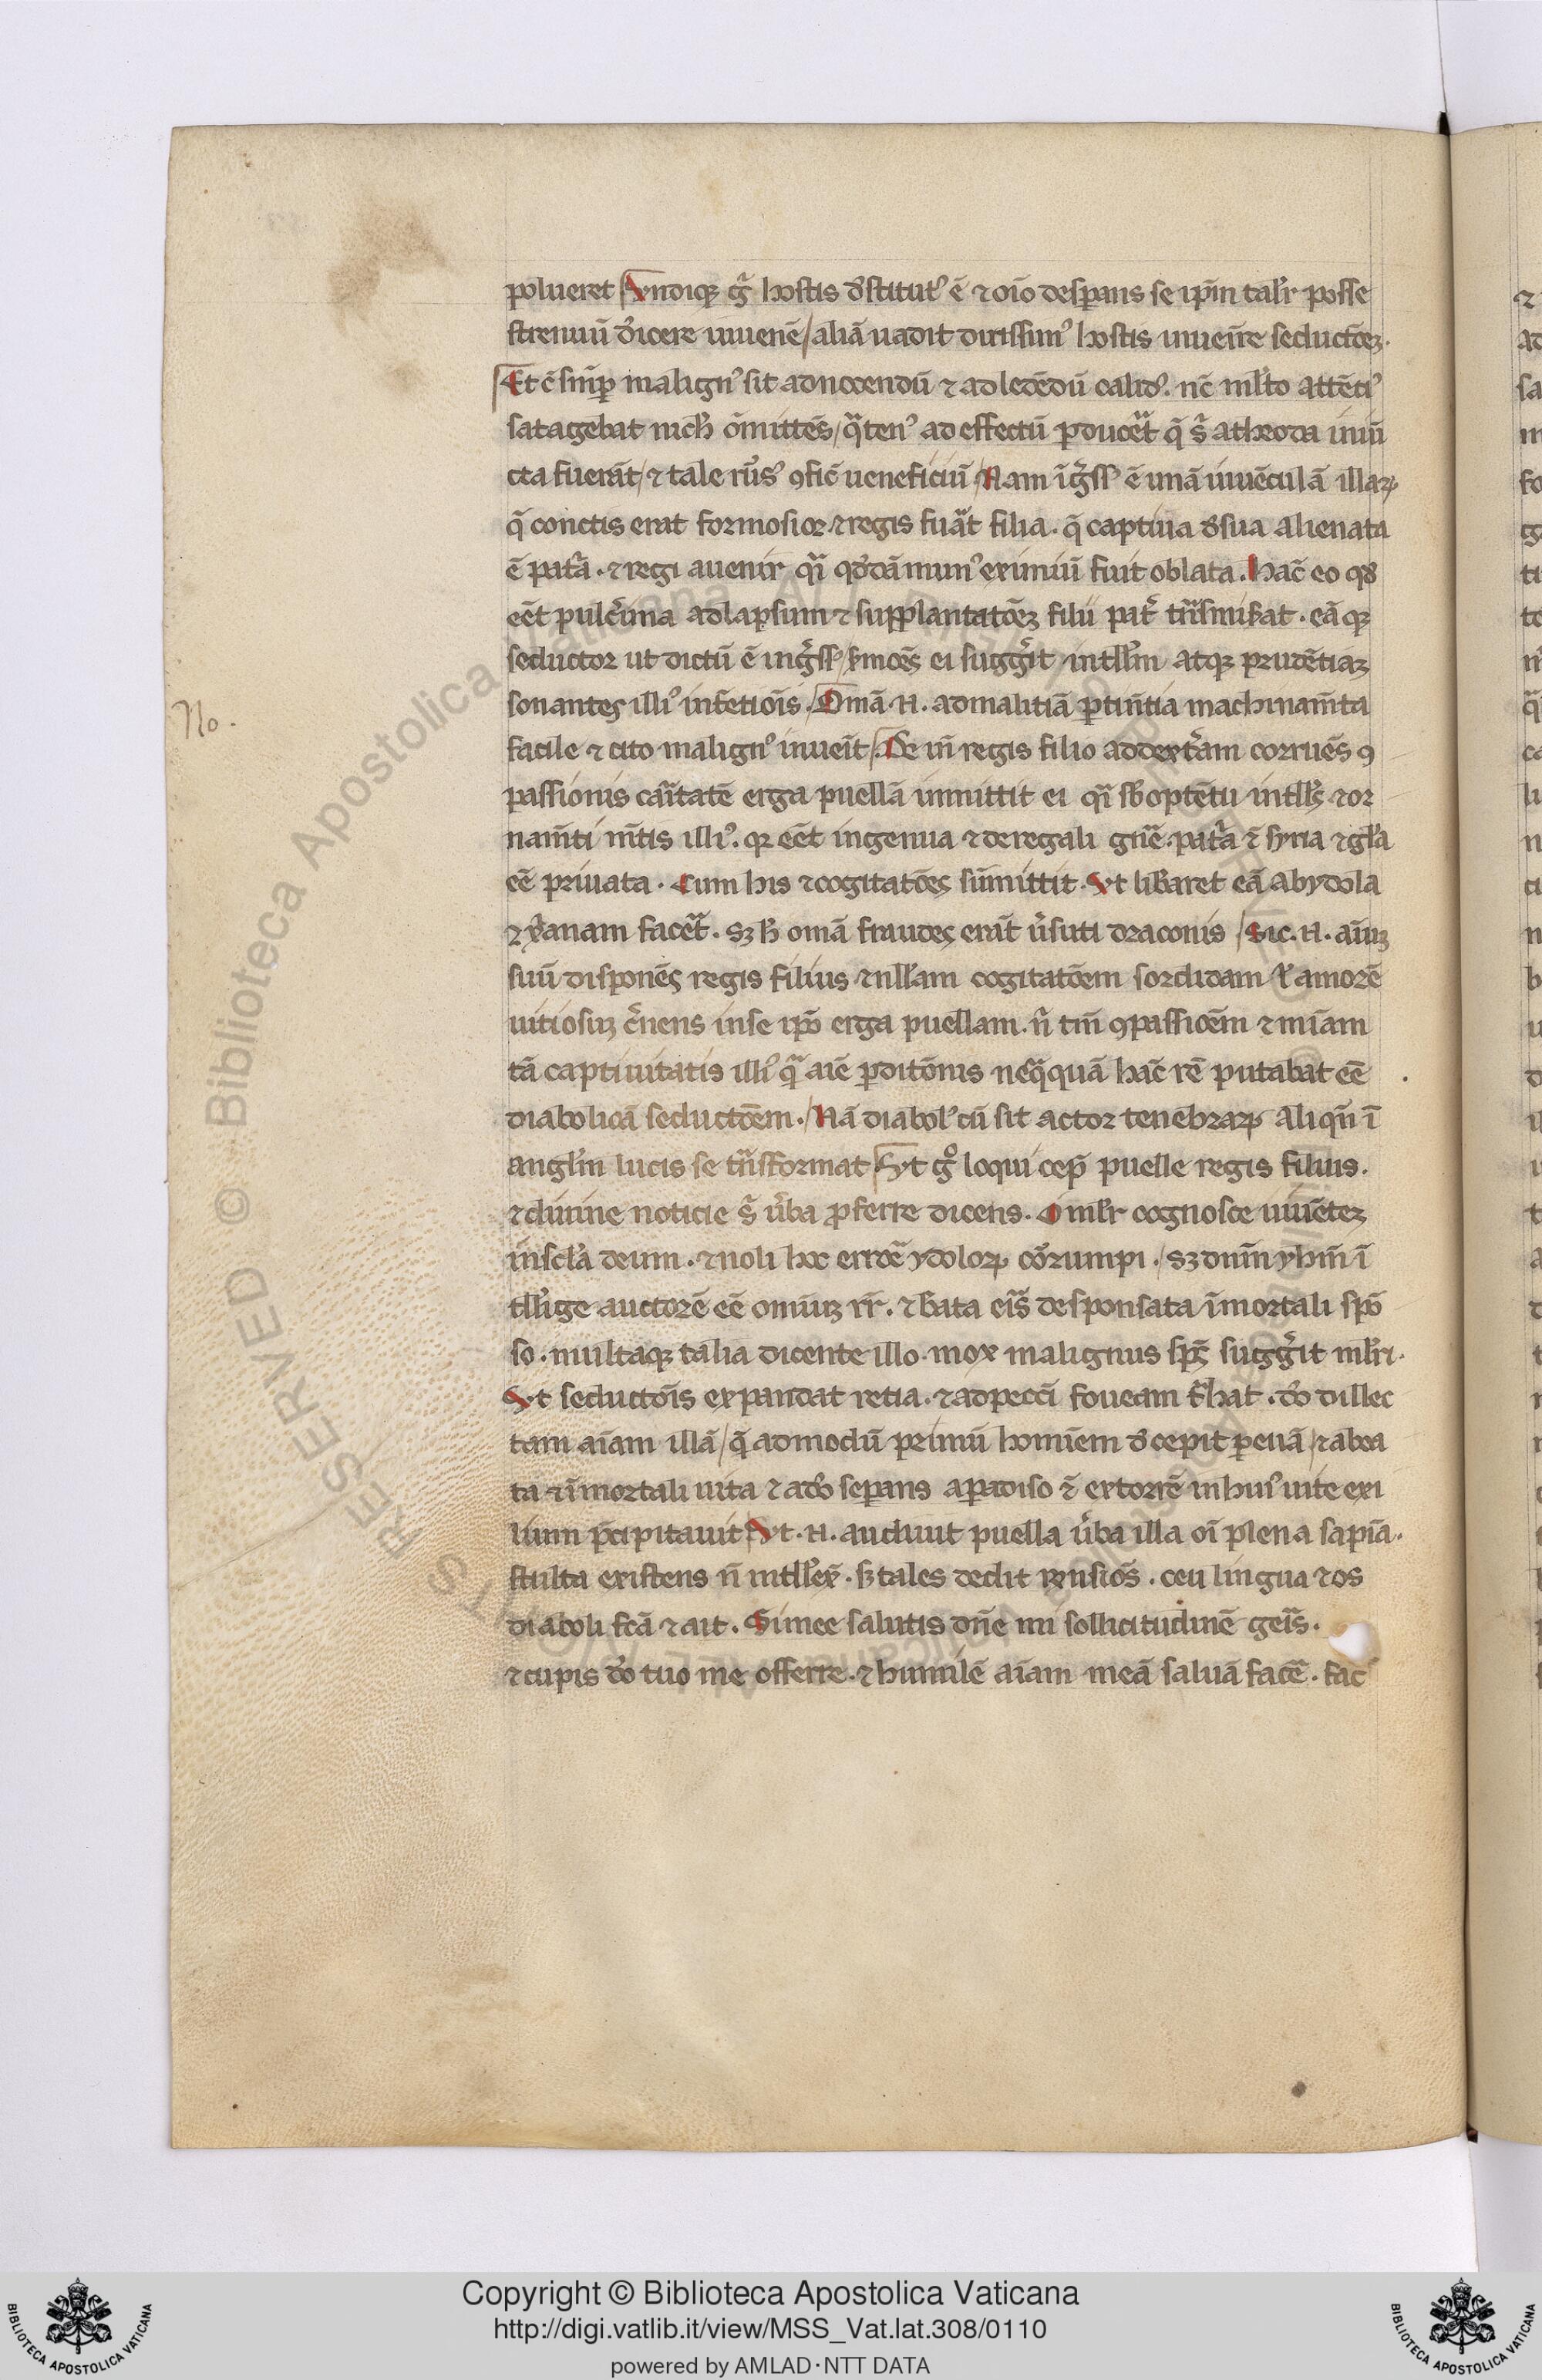 polueret Undiq; gͣ hostis dͤstitut᷒ ē ⁊ oīo desꝑans se ip̄m talr̄ posse
strenuū dͥicere iuuenē / aliā uadit dirissim᷒ hostis inuenire seductōeꝫ.
Et c̄ smꝑ malign᷒ sit ad nocendū ⁊ ad ledēdū calid᷒. nc̄ ml̄to attēti᷒
satagebat nich̄ om̄ittēs / qͣten᷒ ad effectū ꝓducet̄ q̄ s̄ atheoda iniū
cta fuerāt / ⁊ tale rus᷒ ꝯfic̄ ueneficiū / Nam īgͤss᷒ ē unā iuuēculā illaꝝ
q̄ conctis erat formosior. ⁊ regis fuāt filia. q̄ captiua dͤ sua alienata
ē patͥa. ⁊ regi auenir qͣi qͦddā mun᷒ eximiū fuit oblata. Hāc eo qd
eēt pulcͥima ad lapsum ⁊ supplantatōeꝫ filii pat̄ tͣsmis̄at. eā q;
seductor ut dictū ē ingͤss᷒ / s̄moēs ei suggͤit intll̄m atq; prudētiaꝫ
sonantes illi᷒ infetiōis. Oīa .n. ad malitiā ꝑtin̄tia machinam̄ta
facile ⁊ cito malign᷒ inueīt / De in̄ regis filio ad dextͤam corruēs ꝯ
passionis caͥtatē erga puellā inmittit ei qͣi sb̄ optētu intll̄s ⁊ or
nam̄ti m̄tis illi᷒. q; eēt ingenua ⁊ de regali gn̄e. patͥa ⁊ syria ⁊ gl̄a
eē priuata. Cum his ⁊ cogitatōes sūmittit. Ut lib̄aret eā ab ydola
⁊ xͥanam facet̄. sꝫ h̄ omā fraudes erāt uͤsuti draconis / Sic .n. aīuꝫ
suū disponēs regis filius ⁊ null̄am cogitatōem sordidam ł amorē
uitiosuꝫ cͤnens in se ip̄o erga puellam. n̄ tm̄ ꝯpassiōem ⁊ mīam
tā captiuitatis illi᷒ qͣ aīe ꝑditōnis neqͣquā hāc rē putabat eē
diabolicā seductōem. / Nā diabol᷒ cū sit actor tenebraꝝ aliqn̄ ī
angl̄m lucis se tͣsformat Ut gͦ loqui cep̄ puelle regis filius.
⁊ diuine noticie s̄ uͤba ꝓferre dicens. O ml̄r cognosce uiuēteꝫ
in scl̄a deum. ⁊ noli hoc errōē ydoloꝝ corrumpi. sꝫ dnm̄ yhm̄ ī
tll̄ige auctorē eē omiuꝫ rr̄. ⁊ b̄ata eis̄ desponsata īmortali spō
so. multaq; talia dicente illo. mox malignus sps̄ suggͤit ml̄ri.
Ut seductōis expandat retia. ⁊ ad pecc̄i foueam tͣhat. dō dillec
tam aīam illā / q̄ admodū primū homīem dͤcepit ꝑ euā / ⁊ a bea
ta ⁊ īmortali uita ⁊ a dō seꝑans a ꝑadiso ⁊ extorrē in hui᷒ uite exi
lium p̄cipitauit Ut .n. audiuit puella uͤba illa oī plena sapīa.
stulta existens n̄ intll̄ex̄. sꝫ tales dedit rn̄siōs. ceu lingua ⁊ os
diaboli fcā ⁊ ait. Si mee salutis dn̄e mi sollicitudinē geis̄.
⁊ cupis dō tuo me offerre. ⁊ humilē aīam meā saluā facē. fac
No.
Copyright © Biblioteca Apostolica Vaticana
http://digi.vatlib.it/view/MSS_Vat.lat.308/0110
powered by AMLAD·NTT DATA
BIBLIOTECA APOSTOLICA VATICANA
BIBLIOTECA APOSTOLICA VATICANA